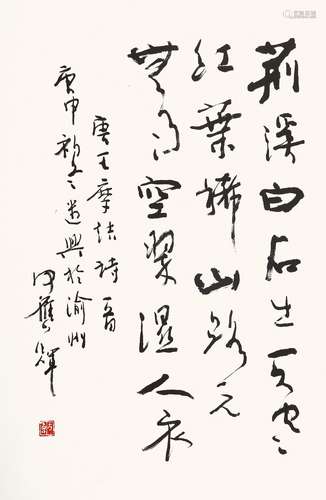 荊溪白石出天寒
紅葉稀山路元
無雨空翠濕人衣
唐王摩詰詩一首
庚申初冬遣興於渝州